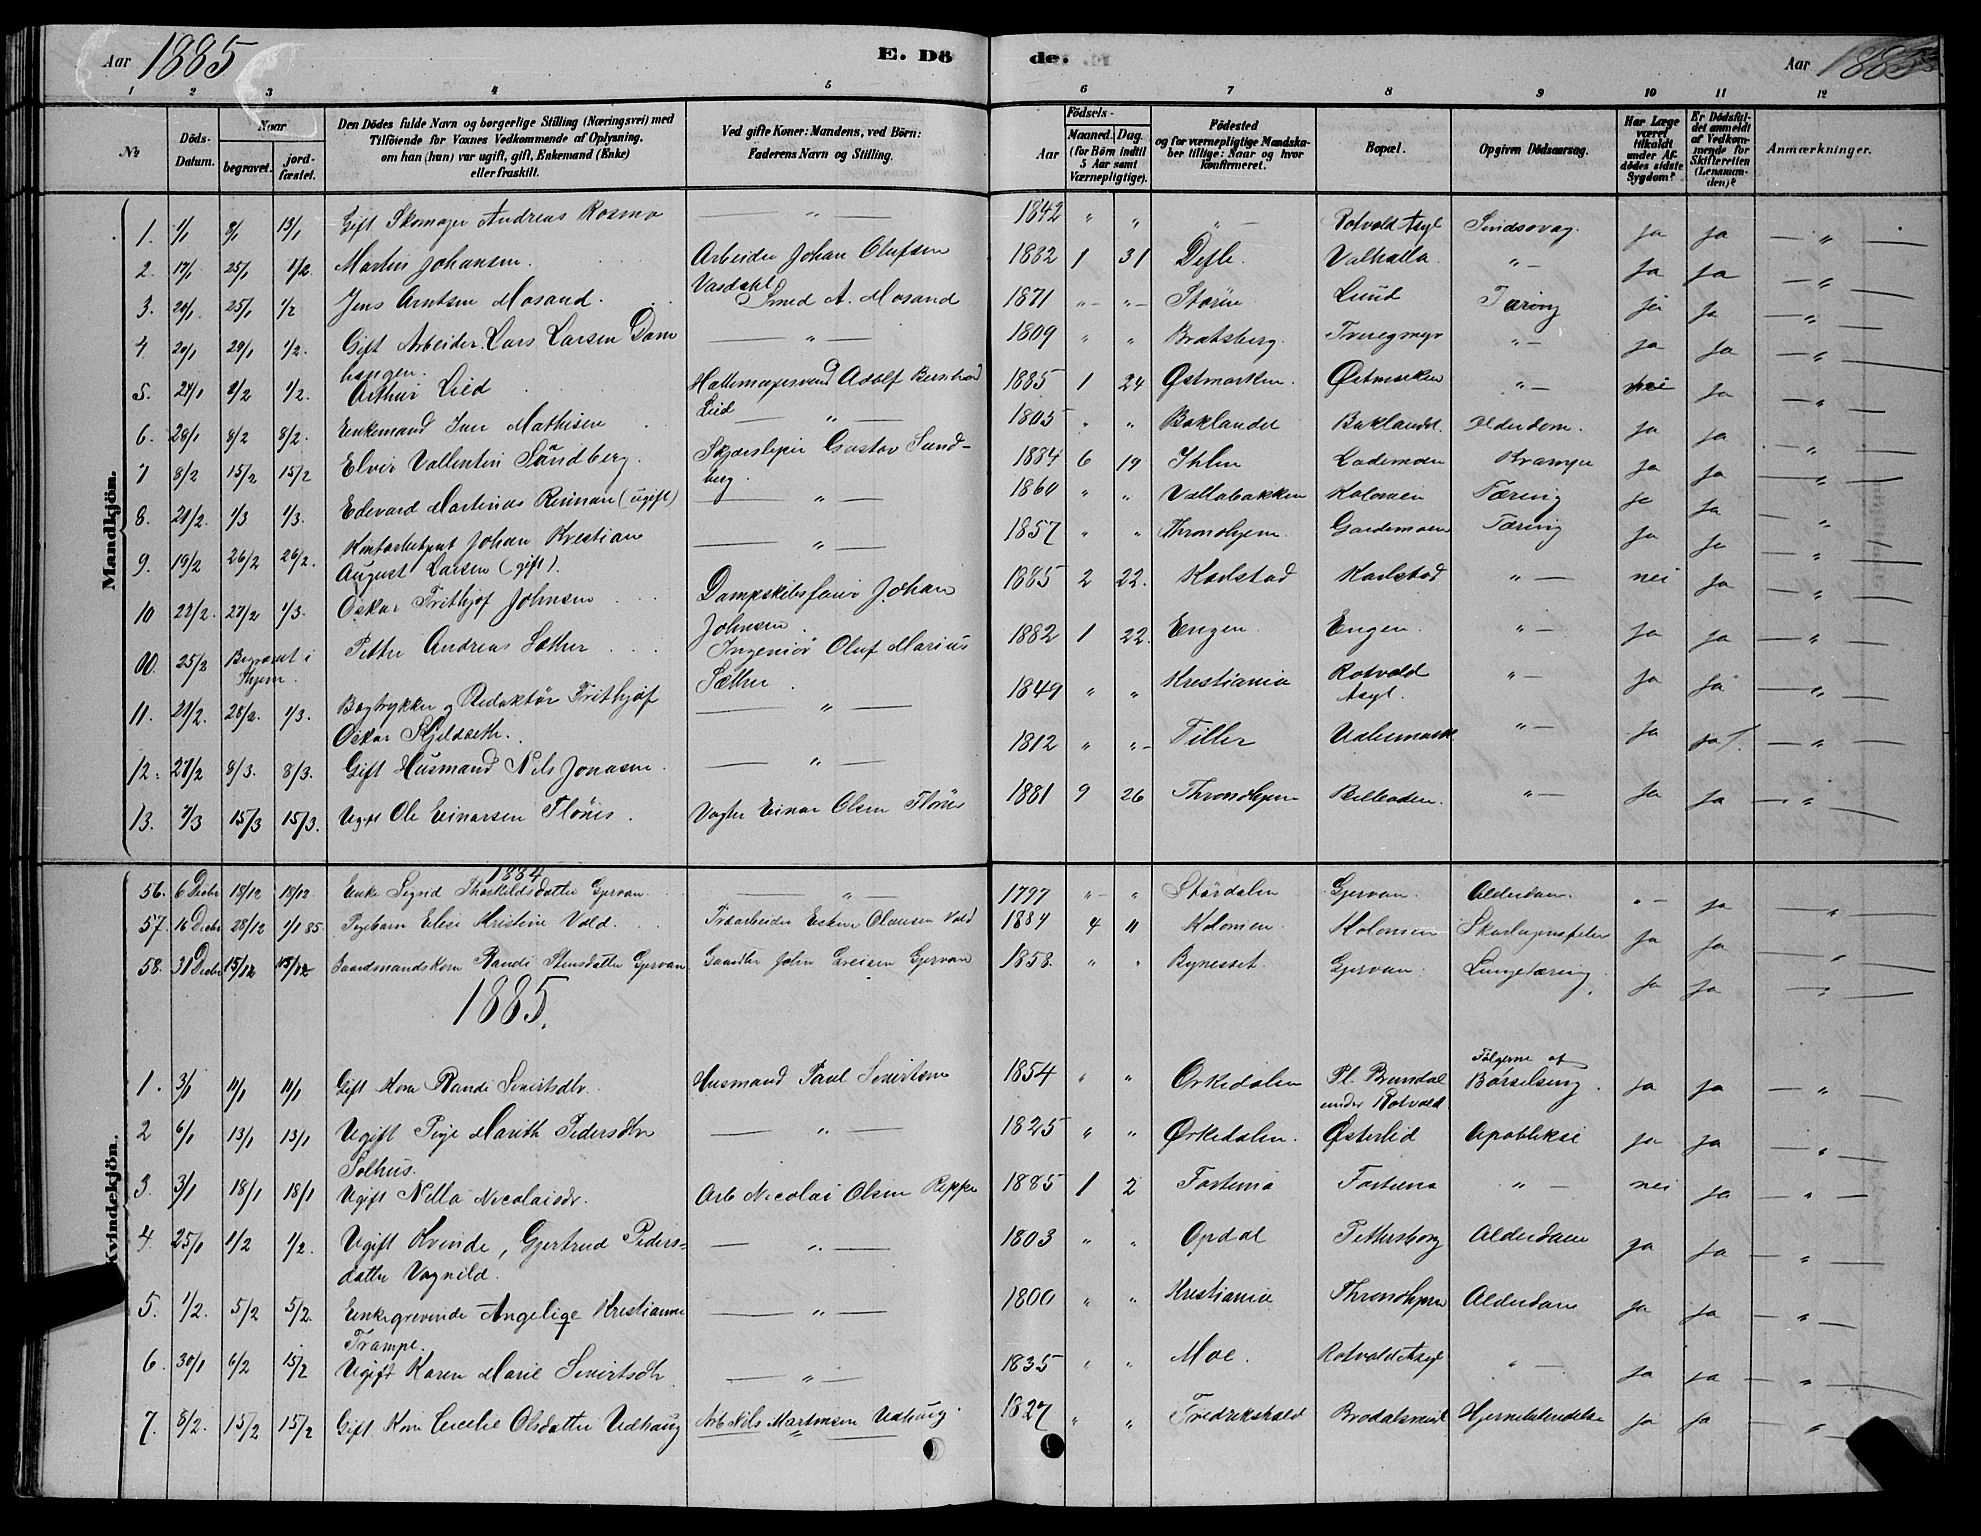 Aar 1885
E. Dö
de.
Aar 1885
1 2 3 4 5 6 7 8 9 10 11 12
No
Döds-Datum.
Naar
begravet.
jord-fæstet.
Den Dödes fulde Navn og borgerlige Stilling (Næringsvei) med
Tilföiende for Voxnes Vedkommende af Oplysning.
om han (hun) var ugift, gift, Enkemand (Enke)
eller fraskilt.
Ved gifte Koner: Mandens, ved Börn:
Faderens Navn og Stilling.
Födsels-
Aar
Maaned. Dag.
(for Börn indtil
5 Aar samt
Værnepligtige).
Födested
og for værnepligtige Mandska-
ber tillige: Naar og hvor
konfirmeret.
Bopæl.
Opgiven Dödsaarsag.
Har Læge
været
tilkaldt
under Af-
dödes sidste
Sygdom?
Er Dödsfal-
det anmeldt
af Vedkom-
mende for
Skifteretten
(Lensman-
den)?
Anmærkninger.
Mandkjön.
1. 4/1 8/1 13/1 Gift Skomager Andreas Rosmo — " — 1842 " " " — Rotvold Asyl Sindssvag. Ja Ja — " —
2. 17/1 25/1 1/2 Martin Johansen. Arbeider Johan Olufsen 1882 1 31 Valhalla. " — Ja Ja — " —
Vasdahl
3. 20/1 25/1 1/2 Jens Arntsen Mosand. Smed A. Mosand 1871 " — " — Størin Lund Tæring Ja Ja — " —
4 20/1 29/1 1/2. Gift Arbeider Lars Larsen Dam — " — 1809 " " Bratsberg. " — Ja Ja — " —
haugen.
5. 24/1 8/2 1/2. Arthur Lied Hattemagersvend Adolf Bernhard 1885 1 24 Østmarken. Østmarken " — nei Ja — " —
Lied
6. 28/1 8/2 8/2. Enkemand Iver Mathisen — " — 1805 " " Baklandet Baklandet. Alderdom. Ja Ja — " —
7 8/2 15/2 15/2 Elvir Vallentin Sandberg. Skjærsliper Gustav Sand- 1884 6 19 Ihlen Lademoen Krampe Ja Ja — " —
berg.
8. 21/2. 1/3 1/3. Edevard Martinus Reinan (ugift) — " — 1860 " " Vollabakken Kolonien Tæring Ja Ja — " —
9. 19/2 26/2 26/2. Johan Kristian — " — 1857 " " Throndhjem. Gardemoen Tæring Ja Ja — " —
August Larsen (gift).
10 22/2. 27/2 1/3. Oskar Frithjof Johnsen Dampskibsfører Johan 1885 2 22. Karlstad Karlstad " — nei Ja — " —
Johnsen.
00. 25/2 Begravet i Petter Andreas Sæther Ingeniør Oluf Marius 1882 1 22. Engen. Engen. " — Ja Ja — " —
Sæther.
11. 21/2. 28/2. 1/3. Bogtrykker og Redaktør Frithjof — " — 1849 " " Kristiania Rotvold " — Ja Ja — " —
Oskar Kjeldseth. Asyl.
12. 27/2 8/3. 8/3. Gift Husmand Nils Jonasen. — " — 1812 " " — Tiller " — Ja Ja — " —
13. 7/3 15/3 15/3. Ugift Ole Einarsen Flönes. Vogter Einar Olsen Flönes 1881 9 26 Throndhjem " — Ja Ja — " —
1884
56. 6 Decbr 18/12 18/12. Enke Sigrid Thorkildsdatter Gjervan. — " — 1797 " — " Størdalen Gjervan. Alderdom. " — Ja — " —
57. 16 Decbr 28/12 4/1 85. Pigebarn Elise Kristine Vold. Træarbeider Olausen Vold 1884 4 11 Kolonien. Kolonien Skarlagensfeber Ja Ja — " —
58. 31 Decbr 15/12 15/12 Gaardmandskone Randi Stensdatter Gjervan Gaardbr John Gjervan 1858. " " Bynesset. Gjervan. Lungetæring. Ja Ja — " —
1885.
Kvindekjön.
1. 3/1 11/1 11/1 Gift Kone Randi Sivertsdtr. Husmand Paul Sivertsen 1854 " " Orkedalen Pl. Brundal Følgerne af Barselseng. Ja Ja — "
under Rotvold.
2 6/1 13/1 13/1 Ugift Pige Marith Pedersdtr — " — 1825 " " Ørkedalen. Østerlid Apopleksi Ja Ja — " —
Solhus.
3. 3/1 18/1 18/1 Ugift Nella Nicolaisdr. Arb Nicolai Olsen Reppe 1885 1 2 Fortuna Fortuna " — nei Ja — " —
4. 25/1 1/2 1/2. Ugift Kvinde, Gjertrud Peders- — " — 1803 " " Opdal Pettersborg Alderdom Ja Ja — " —
datter Vognild.
5. 1/2. 5/2 5/2. Enkegrevinde Angelige Kristianne — " — 1800 " " Kristiania Throndhjem Alderdom Ja Ja — " —
Trampe.
6. 30/1 6/2 15/2 Ugift Karen Marie Sivertsdtr — " — 1835 " " Moe. Rotvold Asyl " — Ja Ja — " —
7. 8/2. 15/2 15/2 Gift Kone Cecelie Olsdatter Vedhaug Arb Nils Martinsen Vedhaug. 1827 " " Fredrikshald Hjernebetændelse Ja Ja — " —